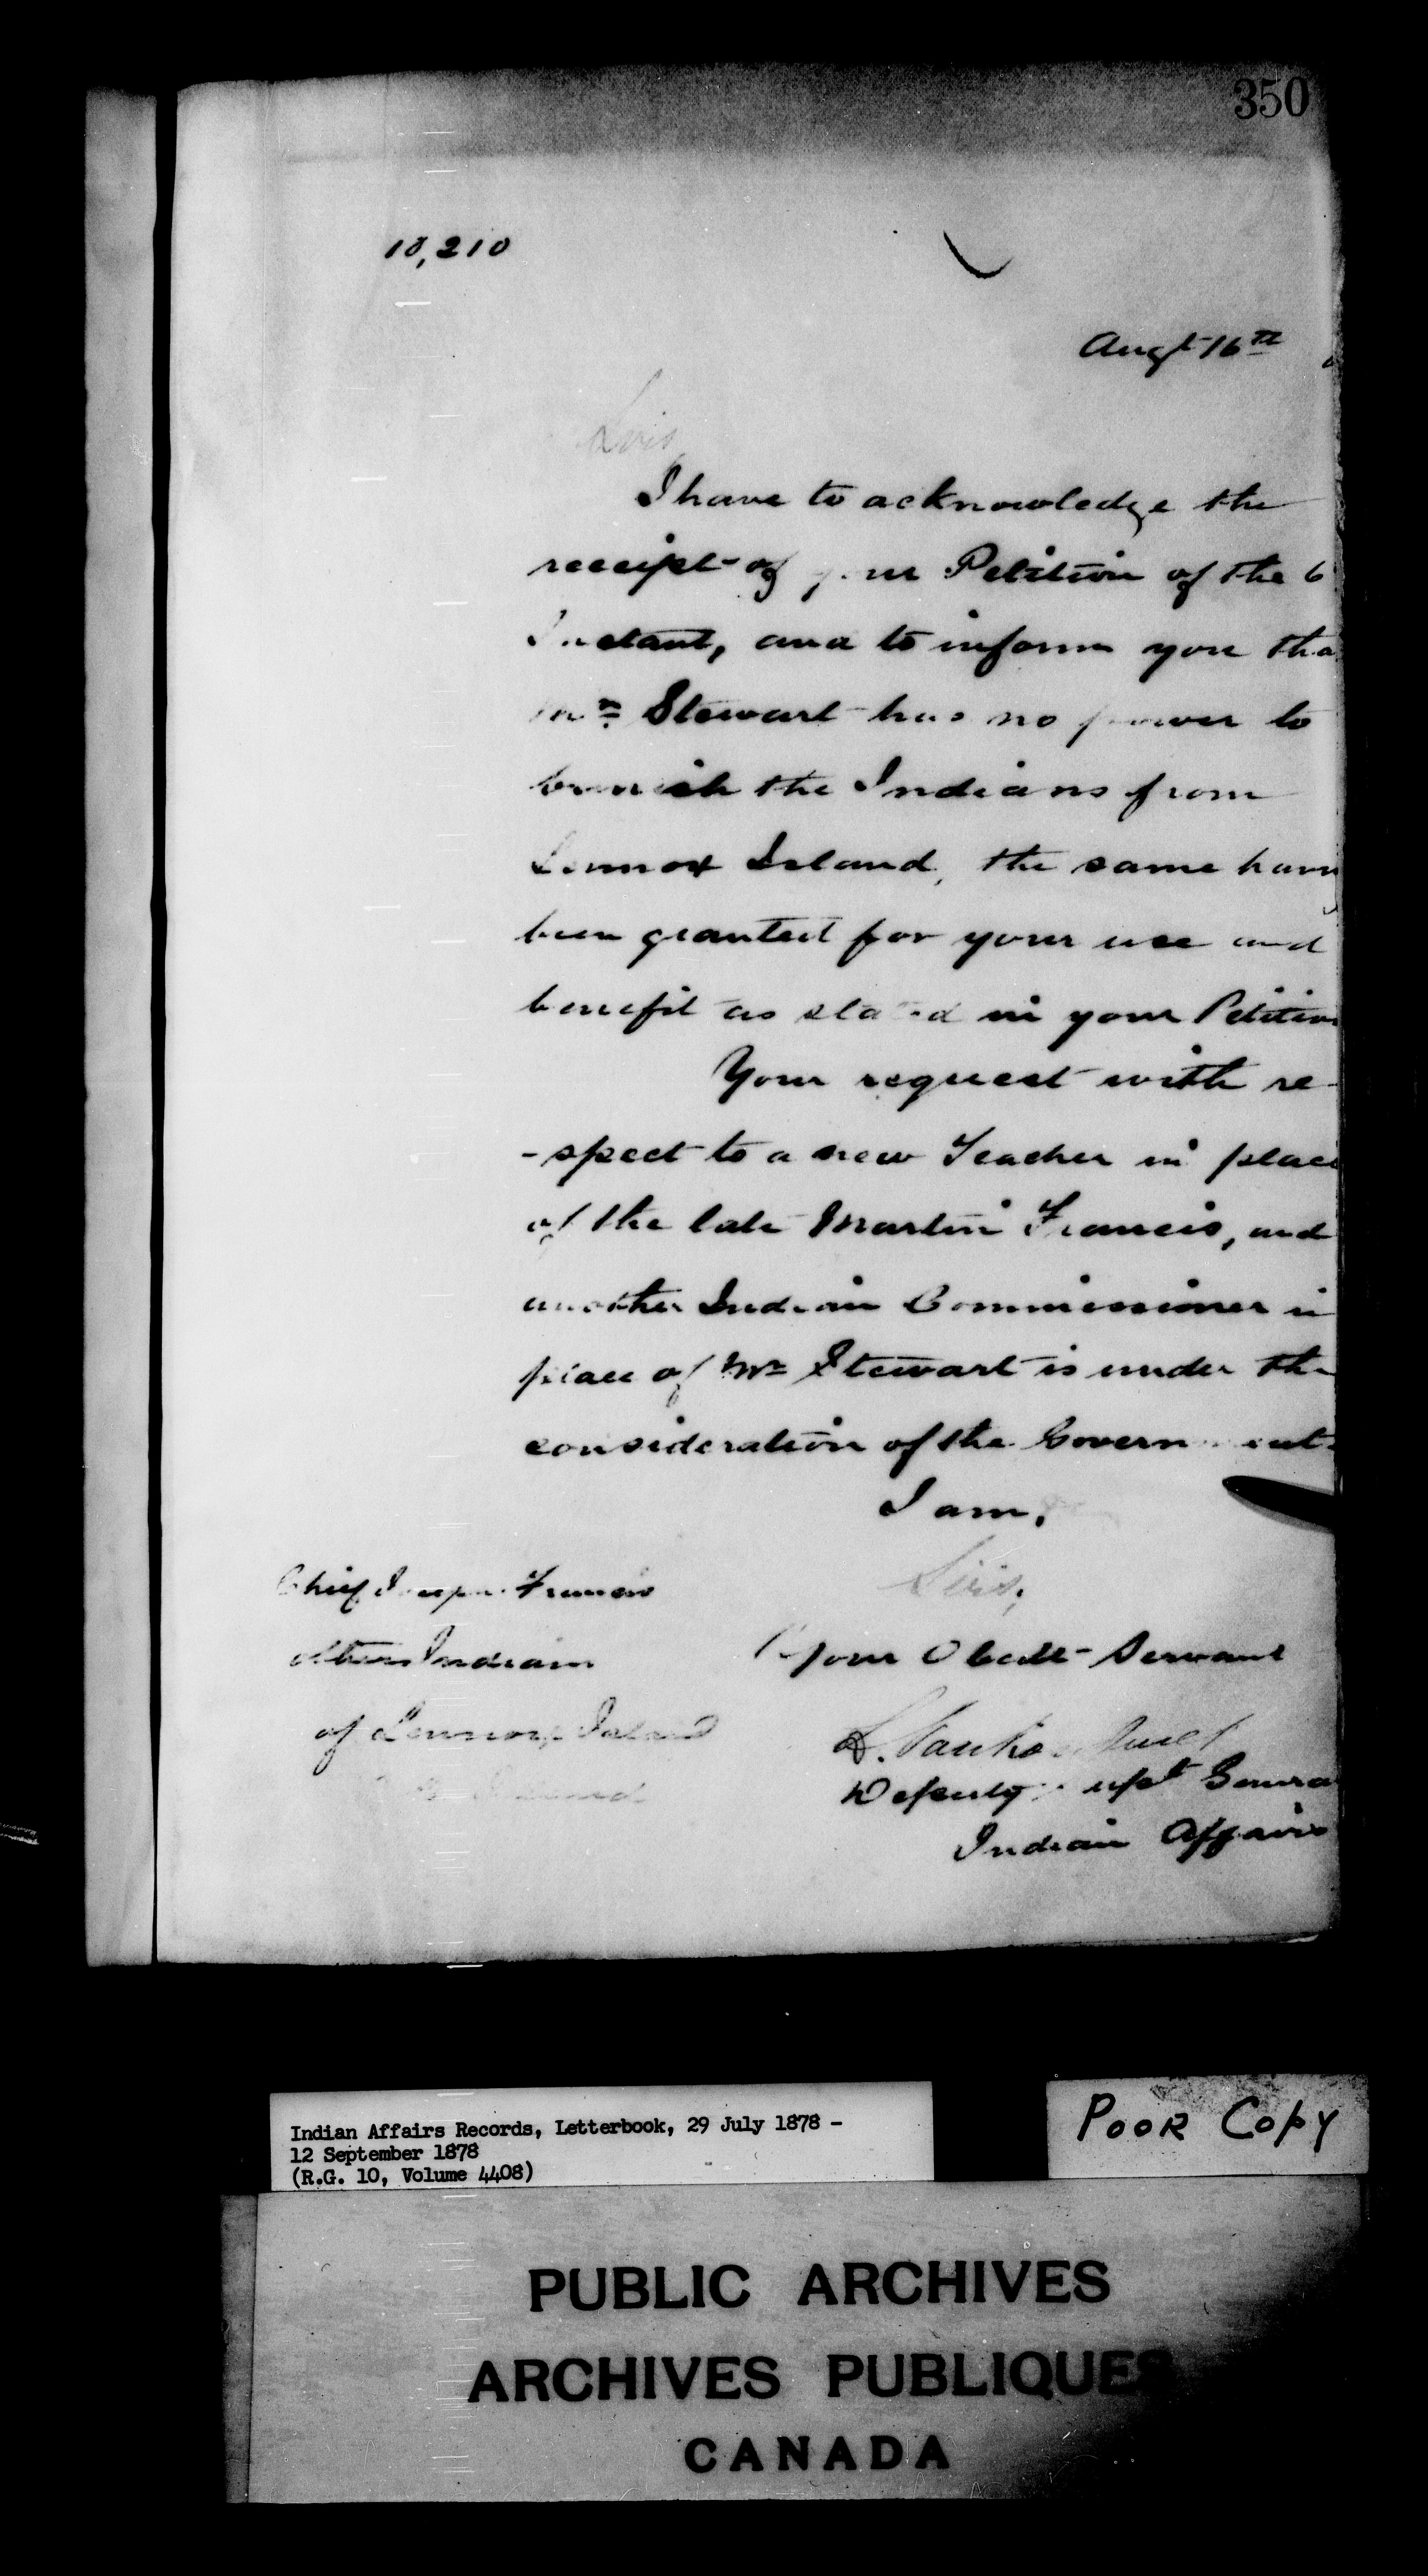 350
10,210
Augt 16th
Sirs,
I have to acknowledge the
receipt of your Petition of the 6
Instant, and to inform you tha
Mr. Stewart has no power to
banish the Indians from
Lennox Island, the same havng
been granted for your use and
benefit as stated in your Petition
Your request with re-
-spect to a new Teacher in place
of the late Martin Francis, and
another Indian Commissioner in
place of Mr Stewart is under the
consideration of the Government.
I am,
Sirs,
Your Obedt Servant
L. Vankoughnet
Deputy Supt Genera
Indian Affairs
Chief Joseph Francis
others Indians
of Lennox Island
Island
Indian Affairs Records, Letterbook, 29 July 1878 -
12 September 1878
(R.G. 10, Volume 4408)
POOR COPY
PUBLIC ARCHIVES
ARCHIVES PUBLIQUES
CANADA